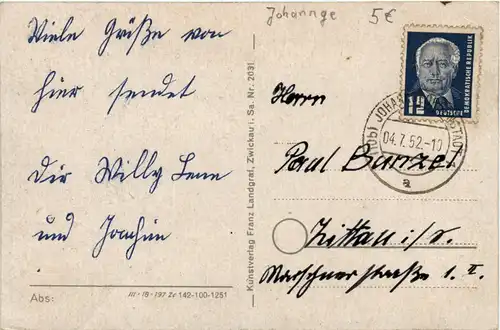 Viele Grüße von
hier sendet
Dir Willy Lene
und Joachim
Abs:
III-18-197 Zr 142-100-1251
Kunstverlag Franz Landgraf, Zwickau i. Sa. Nr. 2031
Johannge
5€
12
DEUTSCHE
DEMOKRATISCHE REPUBLIK
04.7.52.-10
a
Herrn
Paul Bunzel
Zittau i/S.
Marschnerstraße 1. II.